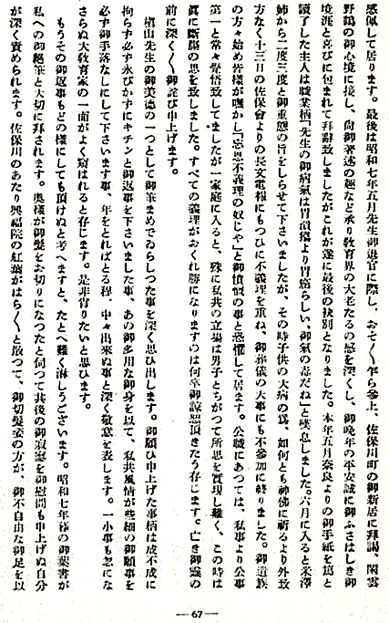 感佩して居ります。最後は昭和七年五月先生御退官に際し、おそ〱乍ら參上、佐保川町の御新居に拜謁、閑雲
野鶴の御心境に接し、尙御著述の趣など承り敎育界の大老たるの感を深くし、御晩年の平安誠に御ふさはしき御
境涯と喜びに包まれて拜辭致しましたがこれが遂に最後の袂別となりました。本年五月奈良よりの御手紙を篤と
讀了した主人は職業柄「先生の御病氣は胃潰瘍より胃癌らしい、御氣の毒だね」と嘆息しました。六月に入ると米澤
姉から二度三度と御重態の旨をしらせて下さいましたが、その時子供の大病の爲、如何とも神佛に祈るより外致
方なく十三日の佐保會よりの長文電報にもつひに不義理を重ね、御葬儀の大事にも不參加に終りました。御遺族
の方々始め皆樣が嘸かし「忘恩不義理の奴じや」と御憤慨の事と恐懼して居ます。公職にあつては、私事より公事
第一と常々覺悟致してましたが一家庭に入ると、殊に私共の立場は男子とちがつて所思を實現し難く、この時は
眞に斷膓の思を致しました。すべての義理がおくれ勝になりますのは何卒御諒恕頂きたう存じます。亡き御靈の
前に深く〱御詫び申上げます。
槇山先生の御美德の一つとして御筆まめでゐらしつた事を深く思ひ出します。御願ひ申上げた事柄は成不成に
拘らず必ず永びかずにキチンと御返事を下さいました事、あの御多用な御身を以て、私共風情が些細の御願事を
必ず御手落なしにして下さいます事、年をとればとる程、中々出來ぬ事と深く敬意を表します。一小事も忽にな
さらぬ大敎育家の一面がよく窺はれると存じます。是非肖りたいと思ひます。
もうその御返事もどの樣にしても頂けぬと考へますと、たとへ難く淋しうございます。昭和七年暮の御葉書が
私への御絕筆と大切に拜されます。奧樣が御髮をお切りになつたと伺つて其後の御寂寥を御慰問も申上げぬ自分
が深く責められます。佐保川のあたり興福院の紅葉がはら〱と散つて、御切髮姿の方が、御不自由な御足を以
―67―